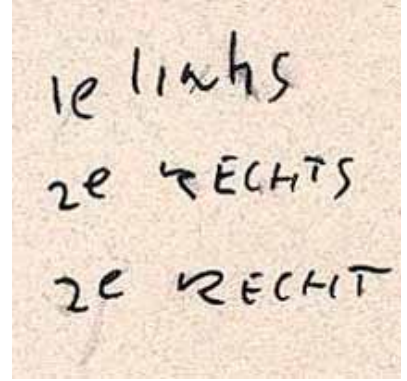 1e links
2e RECHTS
2e RECHT